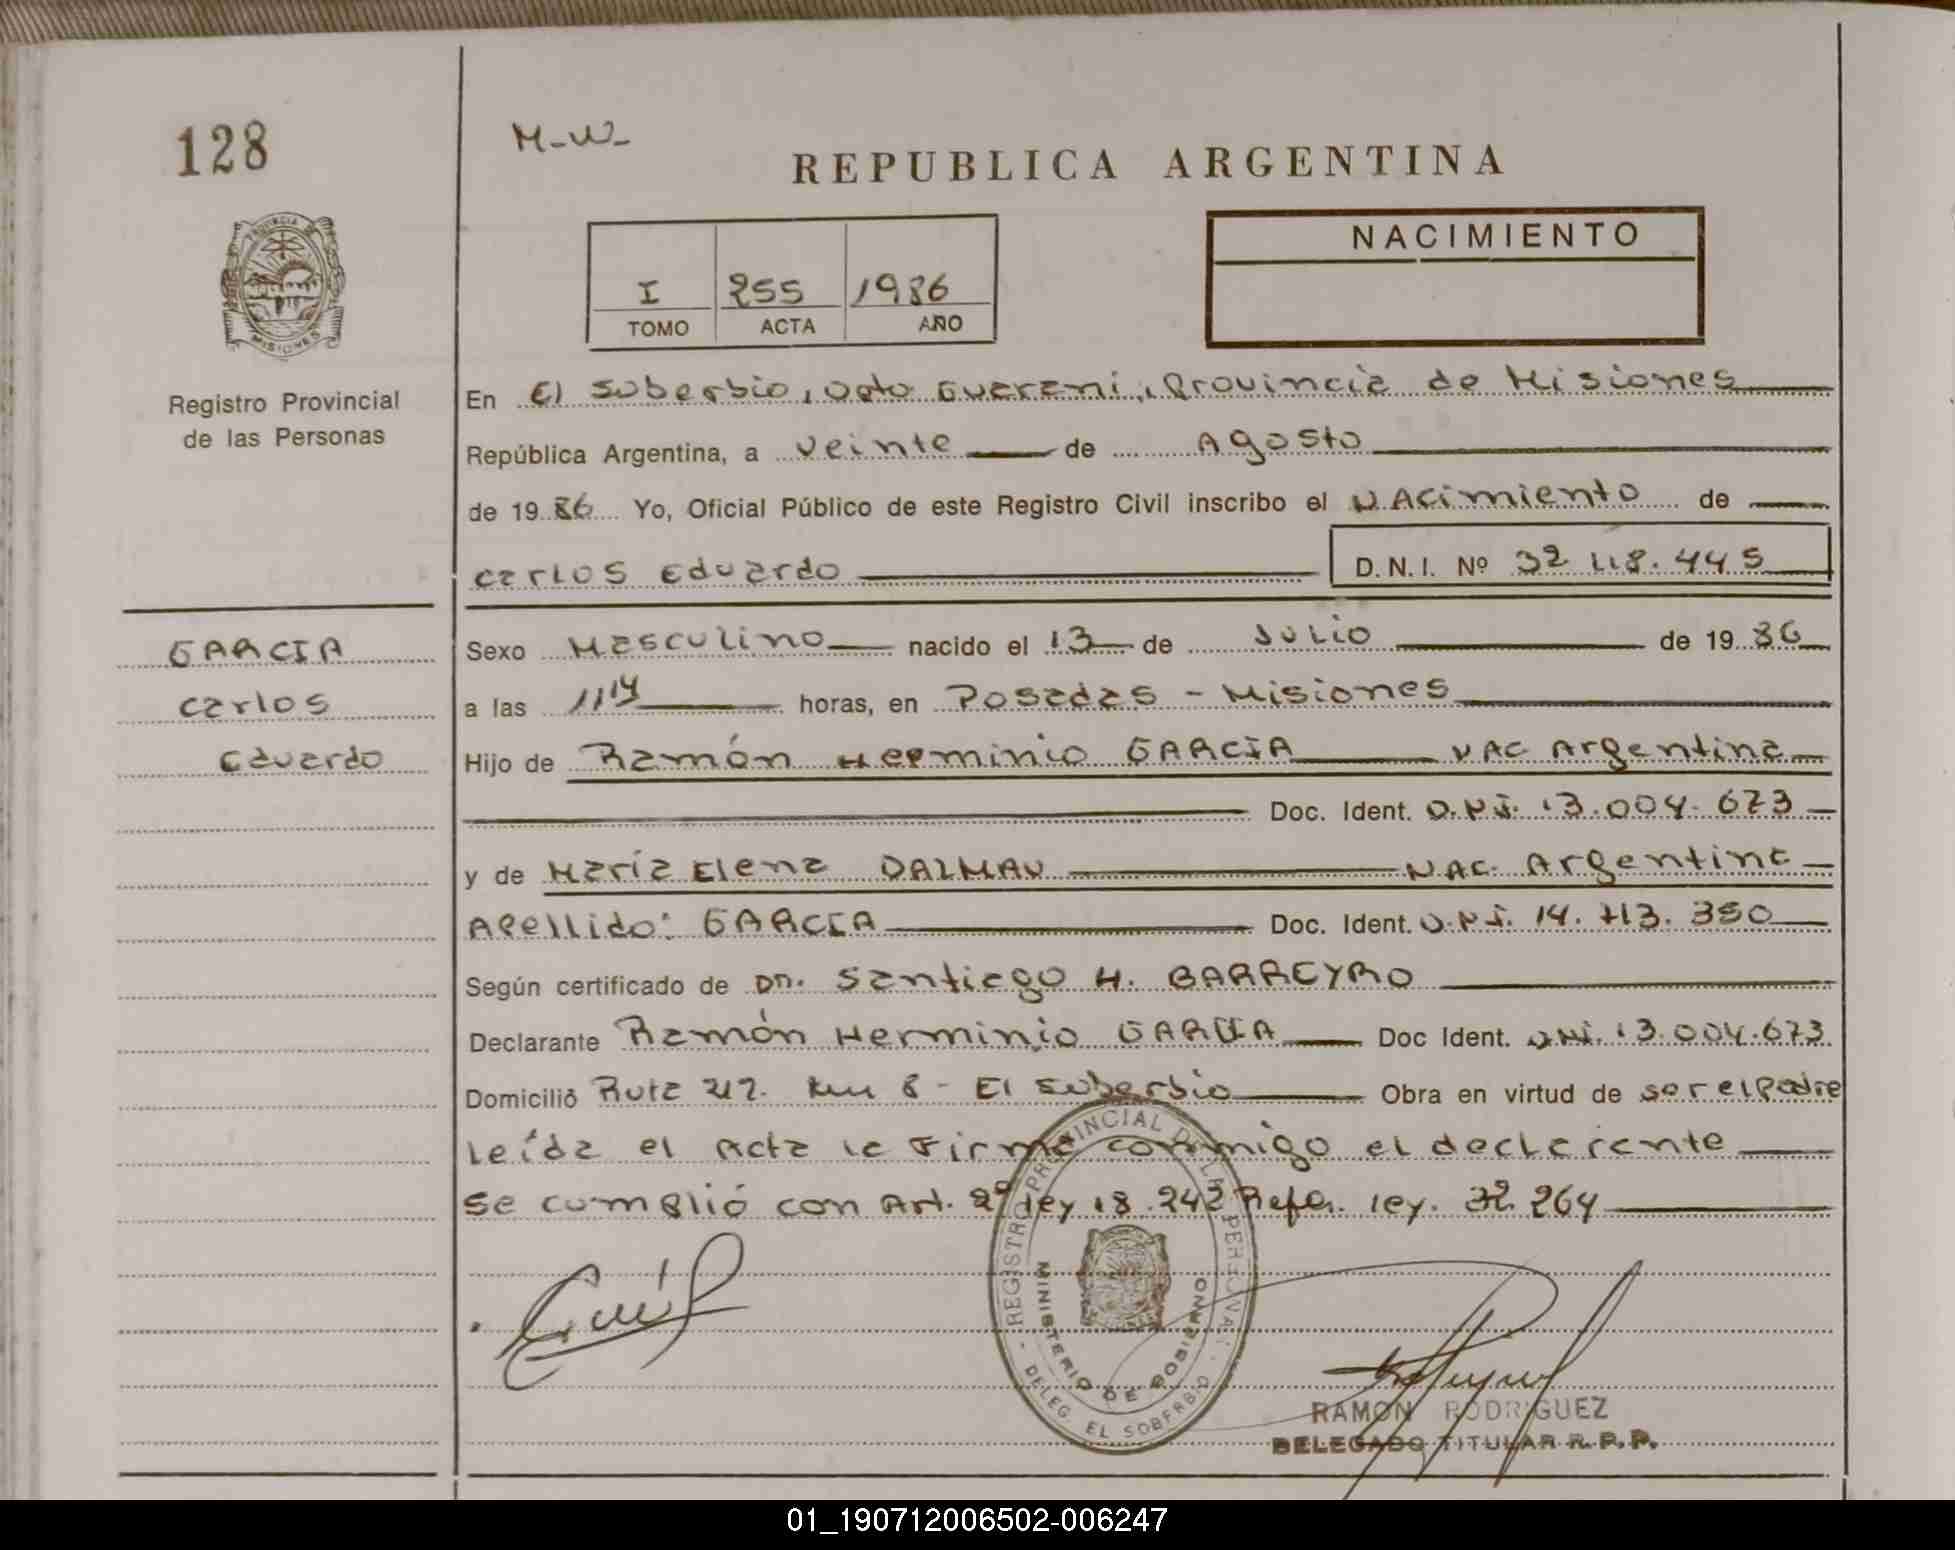 128
M-W-
REPUBLICA ARGENTINA
PROVINCIA DE
MISIONES
I 255 1986
TOMO ACTA AÑO
NACIMIENTO
Registro Provincial
de las Personas
En El Soberbio, Dpto Guarani, Provincia de Misiones
República Argentina, a veinte de Agosto
de 1986 Yo, Oficial Público de este Registro Civil inscribo el NACimiento de
Carlos Eduardo D.N.I. Nº 32 118.445
GARCIA
Carlos
Eduardo
Sexo Masculino nacido el 13 de Julio de 1986
a las 11 14 horas, en Posadas - Misiones
Hijo de Ramón Herminio GARCIA NAC Argentina
Doc. Ident. D.N.I. 13.004.673
y de María Elena DALMAU NAC. Argentina
Apellido: GARCIA Doc. Ident. D.N.I. 14.713.350
Según certificado de DR. Santiago H. BARREYRO
Declarante Ramón Herminio GARCIA Doc Ident. DNI. 13.004.673
Domicilió Ruta 212. Km 8 - El Soberbio Obra en virtud de ser el padre
Leída el Acta la Firma conmigo el declarante
Se cumplió con Art. 2º ley 18.242 ley. 22.264
REGISTRO PROVINCIAL DE LAS PERSONAS
MINISTERIO DE GOBIERNO
- DELEG. EL SOBERBIO -
RAMON RODRIGUEZ
DELEGADO TITULAR R.P.P.
01_190712006502-006247